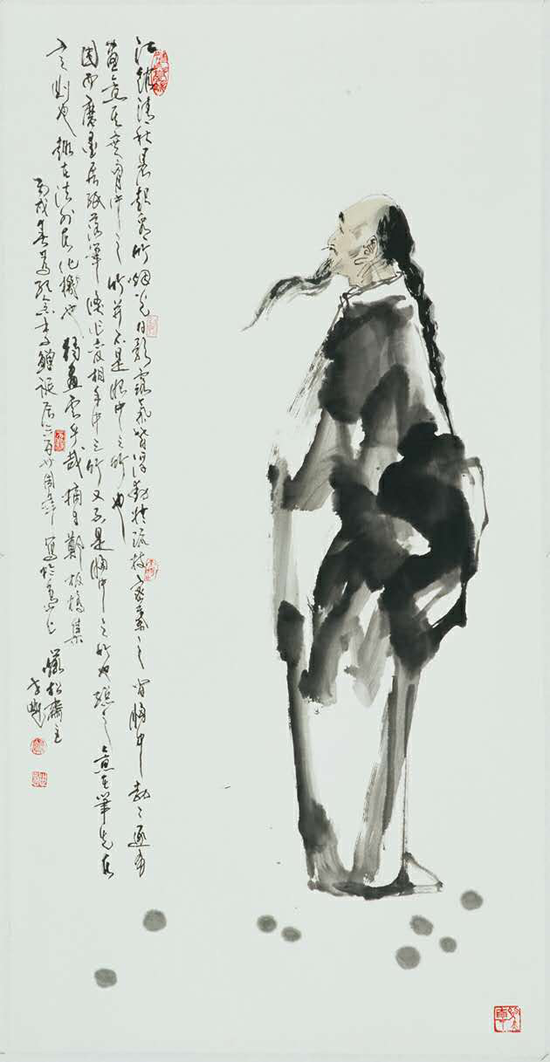 江館清秋晨起看竹烟光日影露氣皆浮動於疏枝密葉之間胸中勃勃遂有
畫意其實胸中之竹并不是眼中之竹也
因而磨墨展紙落筆倏作變相手中之竹又不是胸中之竹也總之意在筆先者
定則也趣在法外者化機也獨畫云乎哉 摘自鄭板橋集
丙戌春 誕辰六百廿周年 寫於 松齋主